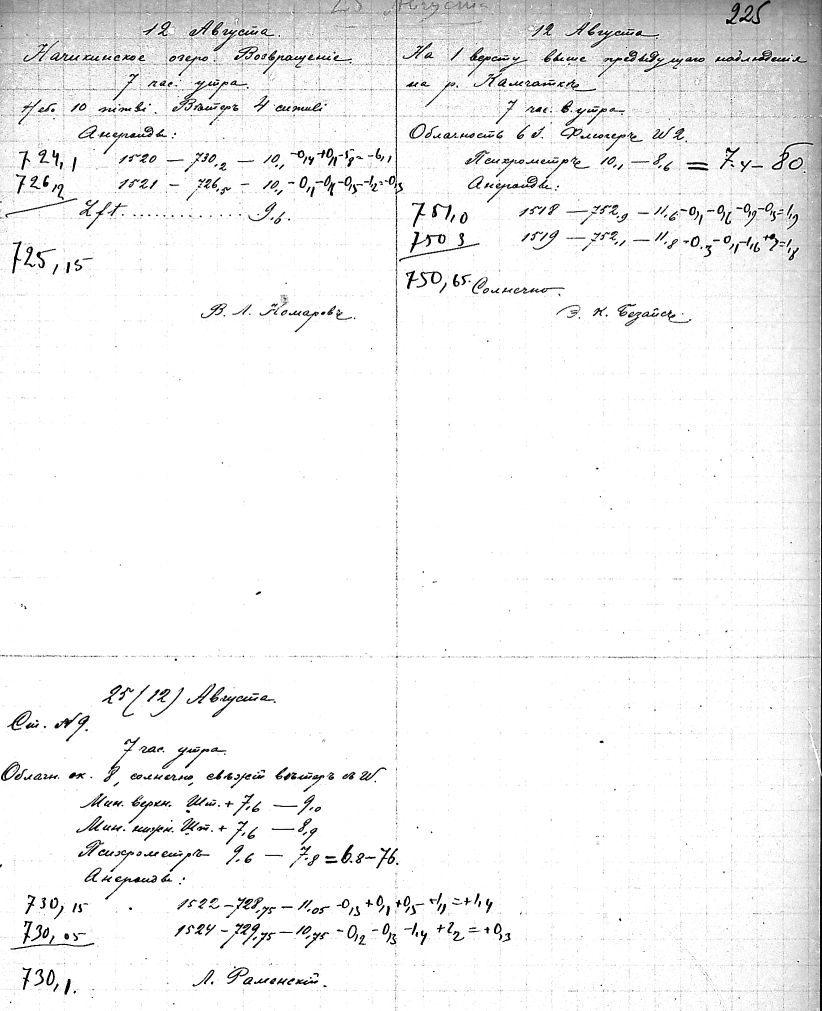 225
25 Августа
12 Августа.
Начикинское озеро. Возвращеніе
7 час. утра.
10 Вѣтеръ 4
Анероиды:
724,1 1520 — 730,2 — 10,1 -0,4 +0,1 -5,8 = -6,1
726,2 1521 — 726,5 — 10,1 -0,3
Lft. . . . . . . . . . . . . 9,6.
725,15
В. Л. Комаровъ.
12 Августа
На 1 версту выше предыдущаго наблюденія
на р. Камчаткѣ
7 час. утра.
Облачность 6 Флюгеръ W 2.
Психрометръ 10,1 — 8,6 = 7.4 — 80.
Анероиды:
751,0 1518 — 752,9 — 11,6 = 1,9
750 3 1519 — 752,1 — 11,8 = 1,8
750,65. Солнечно.
Э. К. Безайсъ.
25 (12) Августа.
Ст. № 9.
7 час. утра.
Облачн. ок. 8, солнечно, свѣжій вѣтеръ W.
Мин. верхн. Шт. + 7,6 — 9,0
Мин. нижн. Шт. + 7,6 — 8,9
Психрометръ 9,6 — 7,8 = 6.8 — 76.
Анероиды:
730,15 1522 — 728,75 — 11,05 -0,3 +0,1 +0,5 +1,1 = +1,4
730,05 1524 — 729,75 — 10,75 -0,2 -0,3 -1,4 +2,2 = +0,3
730,1. Л. Раменскій.